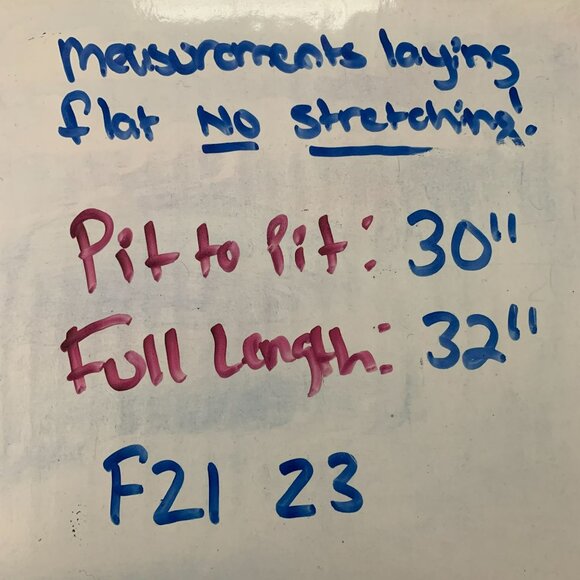 measurements laying
flat NO stretching!
Pit to Pit: 30"
Full Length: 32"
F21 23